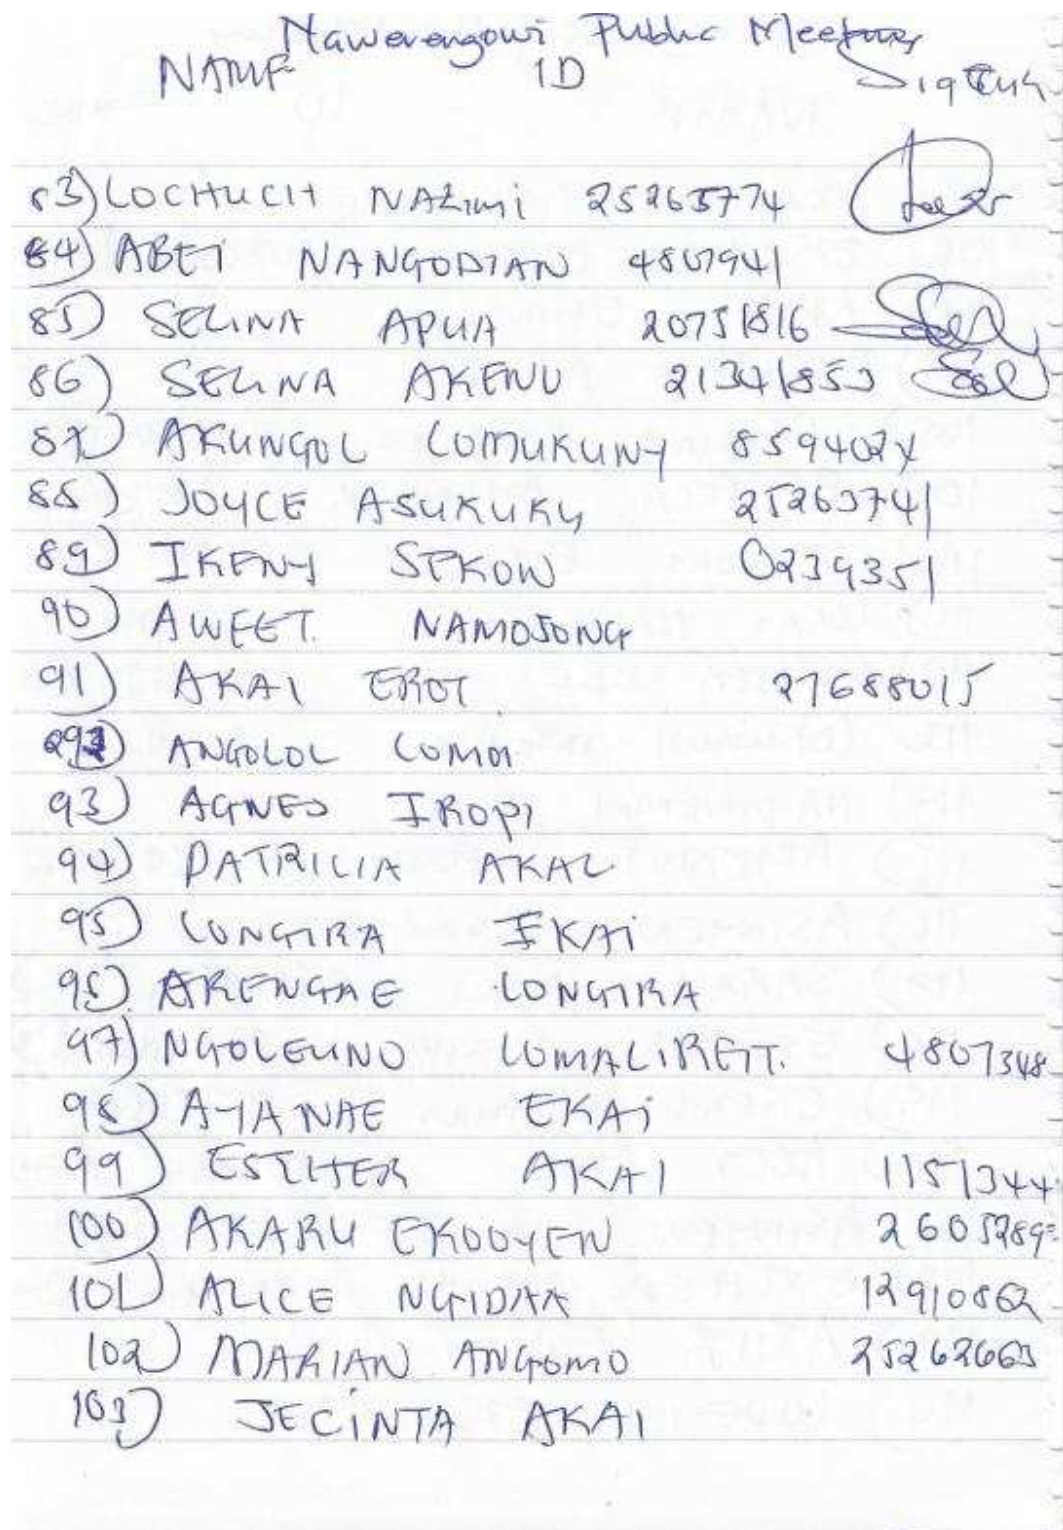 Nawerengowi Public Meeting
NAME ID
83) LOCHUCH NALimi 25263774
84) ABEI NANGODIAN 4807941
85) SELINA APUA 20751816
86) SELINA AKENU 21341853
87) AKUNGOL LOMUKUNY 8594024
88) JOYCE ASUKUKU 25263741
89) IKENY SEKON 0239351
90) AWEET. NAMOJONG
91) AKAI EROT 27688015
92) ANGOLOL LOMOI
93) AGNES IROPI
94) PATRILIA AKAL
95) LONGIRA EKAi
96) ARENGAE LONGIRA
97) NGOLEUNO LOMALIRETT. 4807348
98) AYANAE EKAi
99) ESTHER AKAI 11571344
100) AKARU EKODYEN 2605289
101) ALICE NGIDAA 12910862
102) MARIAN ANGOMO 25262663
103) JECINTA AKAI